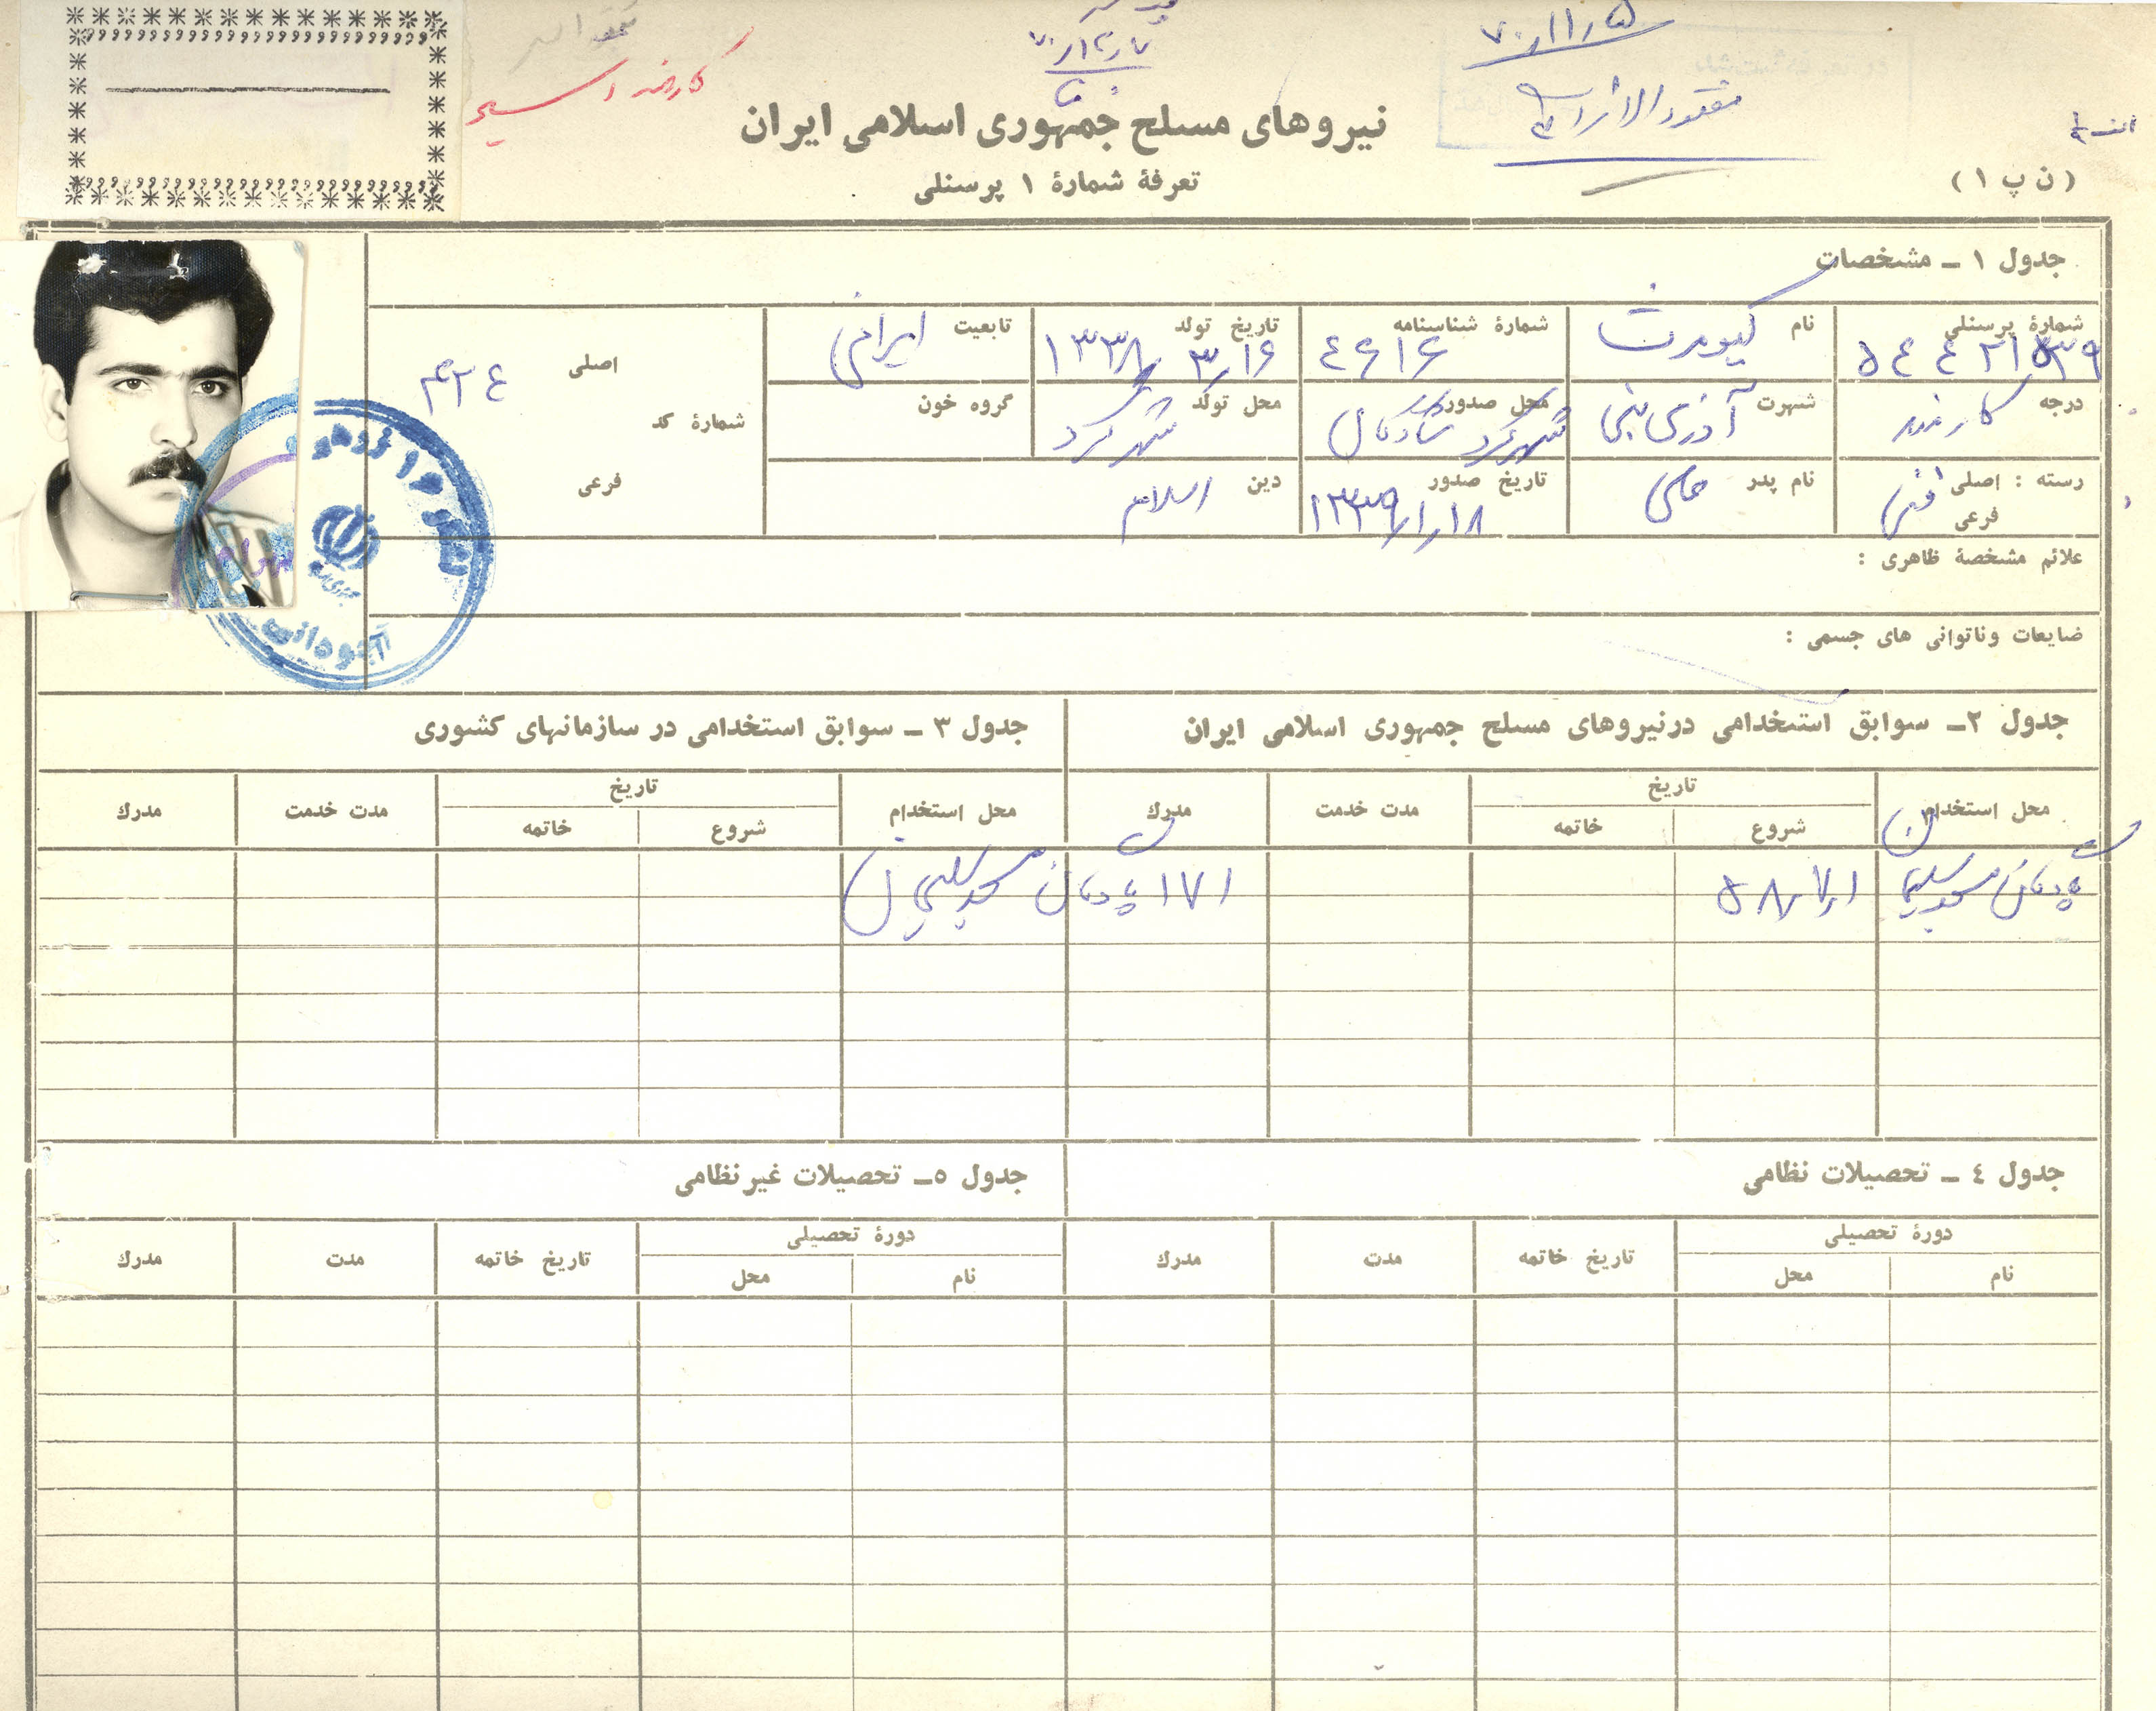 ۷۰٫۱۱٫۵
مفقودالاثر
۷۰٫۱۲٫۷
نیروهای مسلح جمهوری اسلامی ایران
(ن پ ۱)
تعرفهٔ شمارهٔ ۱ پرسنلی
جدول ۱ ــ مشخصات
شمارهٔ پرسنلی
نام کیومرث
شمارهٔ شناسنامه ٤۶۱۶
تاریخ تولد ۱۳۳۸٫۳٫۱۶
تابعیت ایرانی
شمارهٔ کد اصلی ۴۲٤
درجه کارمند
شهرت
محل صدور شادگان
محل تولد شهرکرد
گروه خون
رسته : اصلی فنی
نام پدر علی
تاریخ صدور ۱۳۳۹٫۱٫۱۸
دین اسلام
فرعی
فرعی
علائم مشخصهٔ ظاهری :
ضایعات وناتوانی های جسمی :
جدول ۲ــ سوابق استخدامی درنیروهای مسلح جمهوری اسلامی ایران
جدول ۳ ــ سوابق استخدامی در سازمانهای کشوری
محل استخدام تاریخ مدت خدمت مدرك
شروع خاتمه
محل استخدام تاریخ مدت خدمت مدرك
شروع خاتمه
پادگان مسجدسلیمان ۵۸٫۷٫۱
۱۷۱ پادگان مسجدسلیمان
جدول ٤ ــ تحصیلات نظامی
جدول ٥ــ تحصیلات غیرنظامی
دورهٔ تحصیلی تاریخ خاتمه مدت مدرك
نام محل
دورهٔ تحصیلی تاریخ خاتمه مدت مدرك
نام محل